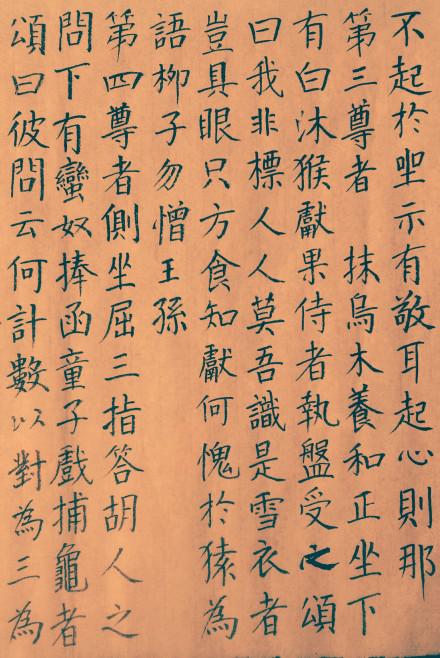 不起於坐示有敬耳起心則那
第三尊者 抹烏木養和正坐下
有白沐猴獻果侍者執盤受之頌
曰我非標人人莫吾識是雪衣者
豈具眼只方食知獻何愧於猿為
語柳子勿憎王孫
第四尊者側坐屈三指答胡人之
問下有蠻奴捧函童子戲捕龜者
頌曰彼問云何計數以對為三為